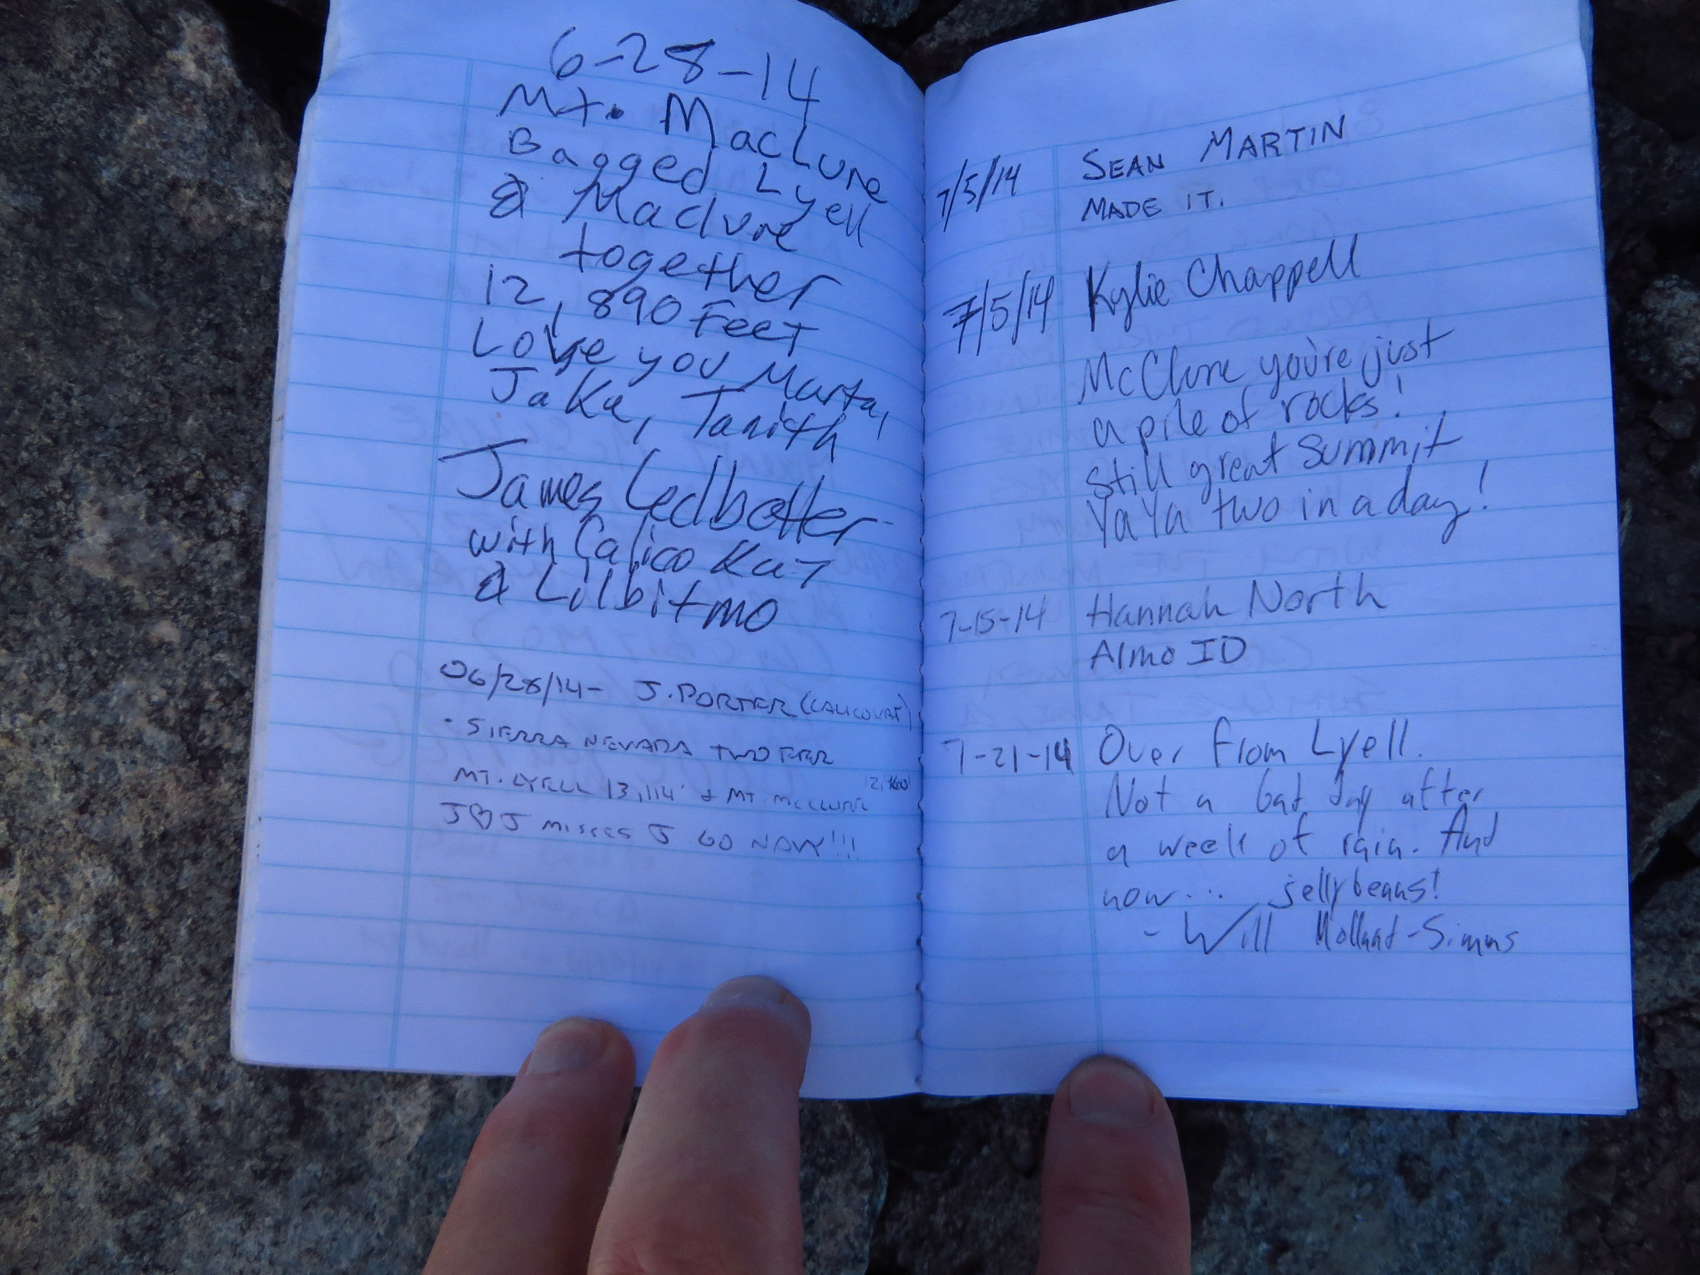 6-28-14
Mt. Maclure
Bagged Lyell
& Maclure
together
12,890 Feet
Love you Marta,
Jake, Tanith
James Ledbetter
with Calico Kat
& Lilbitmo
06/28/14- J. PORTER (CALICOKAT)
· SIERRA NEVADA TWO FER
MT. LYELL 13,114' & MT. MCCLURE
J♡J misses J GO NAVY!!!
7/5/14 SEAN MARTIN
MADE IT.
7/5/14 Kylie Chappell
McClure you're just
a pile of rocks!
still great summit
Ya Ya two in a day!
7-15-14 Hannah North
Almo ID
7-21-14 Over from Lyell.
Not a bad day after
a week of rain. And
now... jellybeans!
- Will